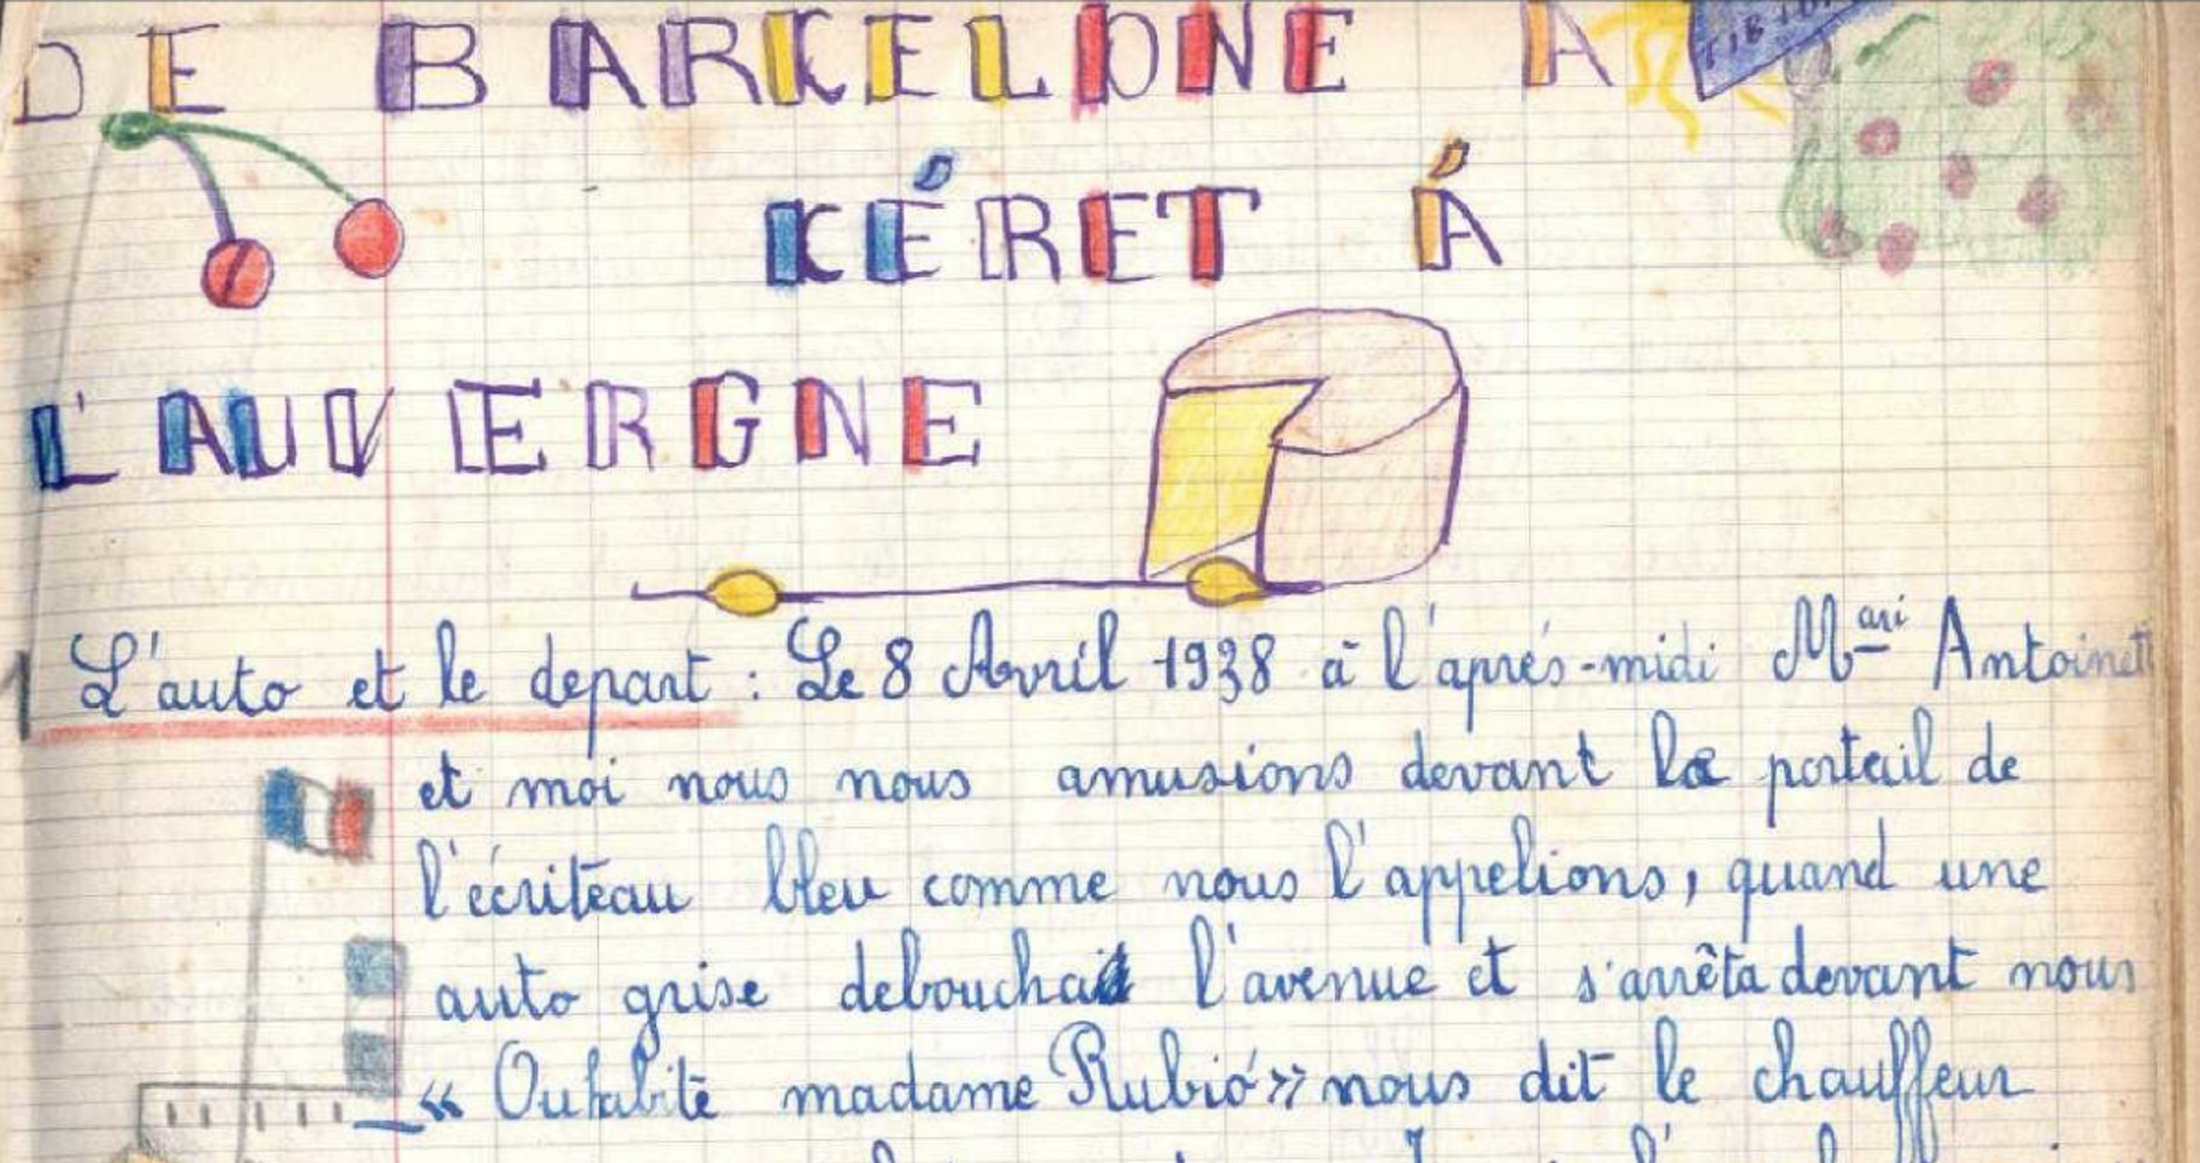 DE BARCELONE A
KÉRET Á
L'AUVERGNE
1 L'auto et le depart : Le 8 Avril 1938 à l'aprés-midi Mari Antoinett
et moi nous nous amusions devant le portail de
l'écriteau bleu comme nous l'appelions, quand une
auto grise debouchait l'avenue et s'arrêta devant nous
« Ou habite madame Rubió » nous dit le chauffeur